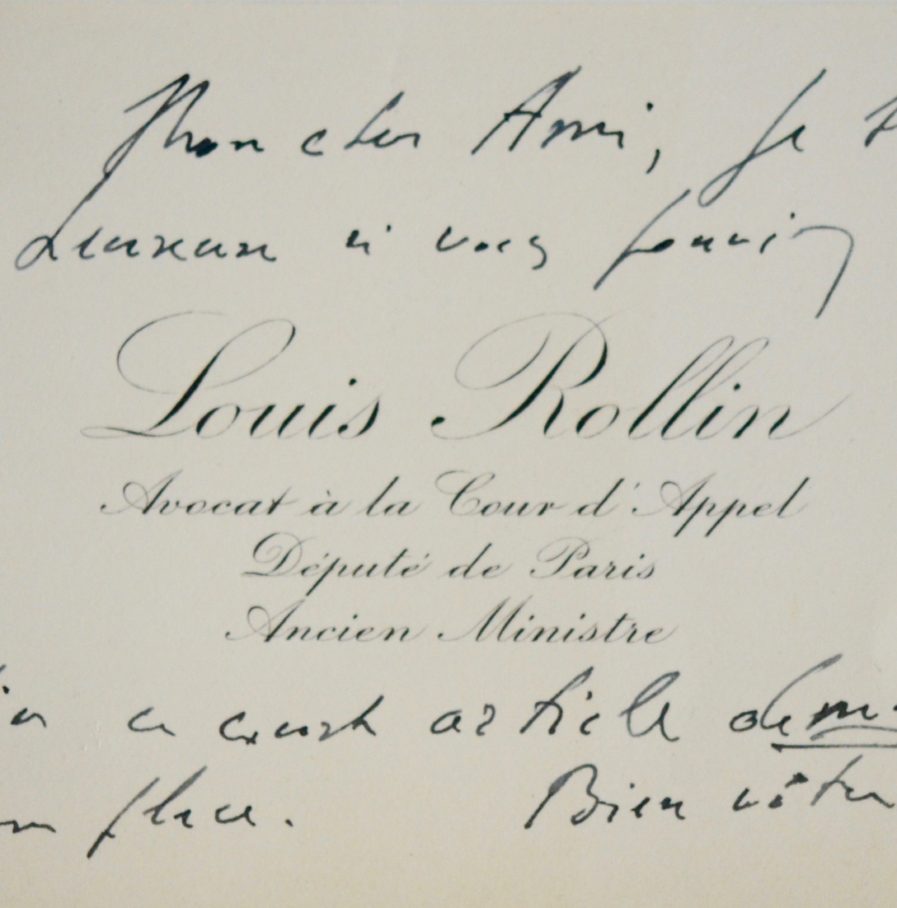 Mon cher Ami, Je
heureux si vous pouvi
Louis Rollin
Avocat à la Cour d'Appel
Député de Paris
Ancien Ministre
ce court article dem
place. Bien vôtre